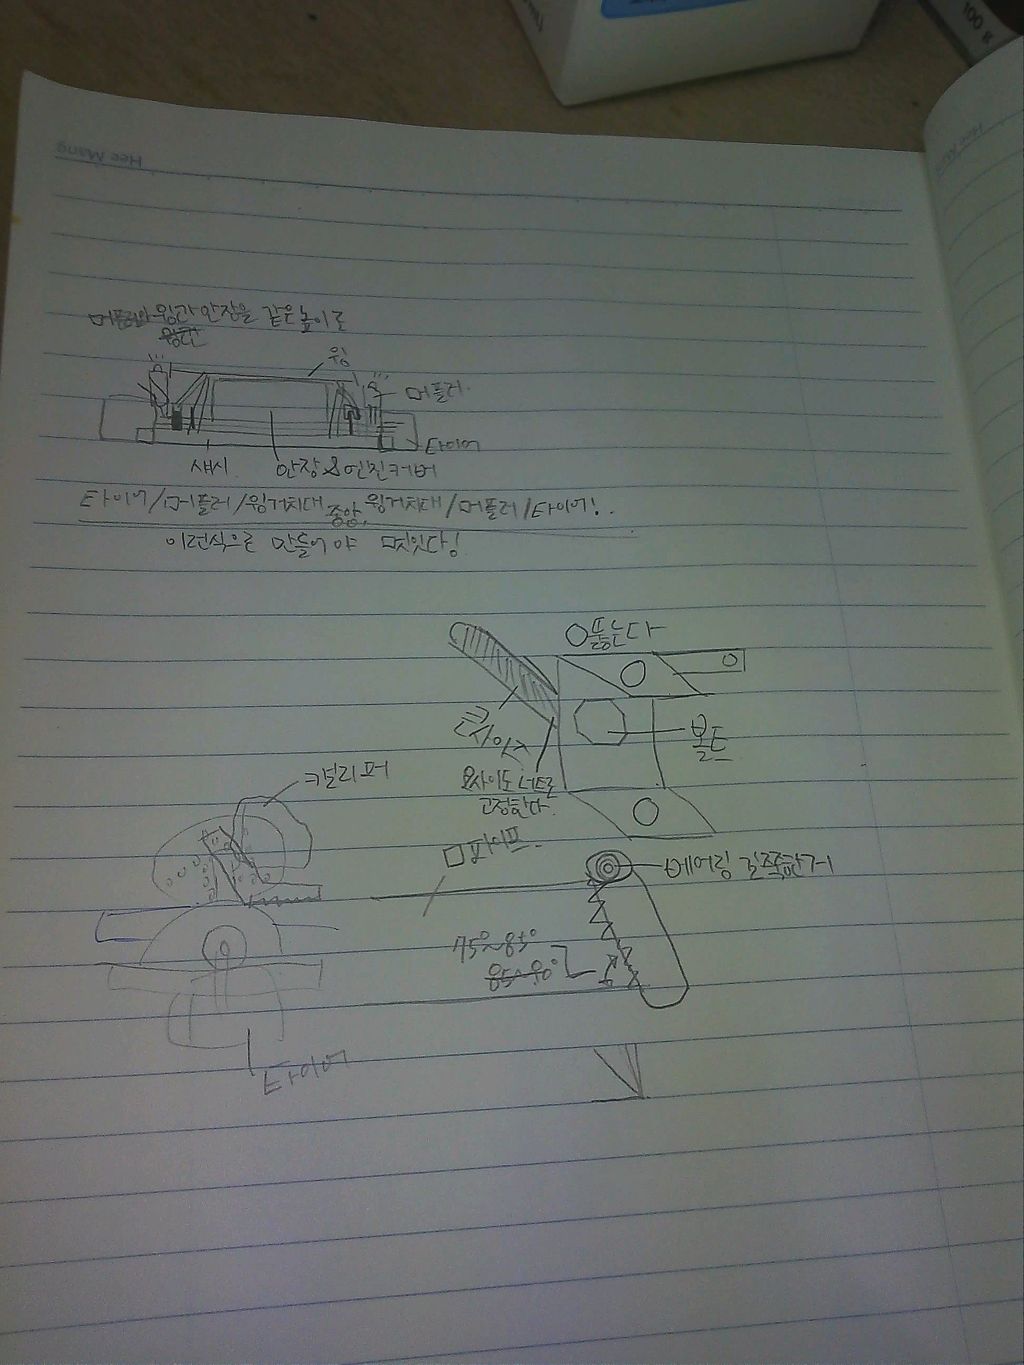 Hee Mang
머플러와 윙과 안장을 같은 높이로
윙
머플러
타이어
섀시
안장 & 엔진커버
타이어/머플러/윙거치대 중앙, 윙거치대/머플러/타이어!
이런식으로 만들어야 멋있다!
O뚫는다
볼트
양사이드 너트로
고정한다.
캘리퍼
ㅁ파이프
베어링 길쭉한거
75°~85°
85~90°
타이어
100 g